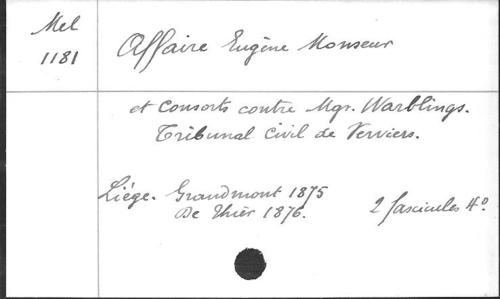 Mel
1181
Affaire Eugène Monseur
et Consorts contre Mgr. Warblings.
Tribunal Civil de Verviers.
Liége. Grandmont 1875
De Thier 1876.
2 fascicules 4º